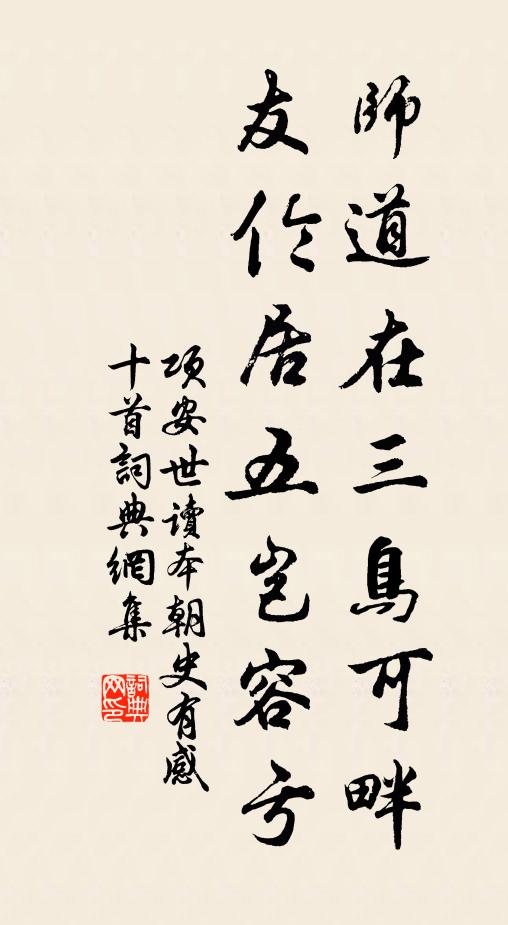 師道在三烏可畔
友伦居五岂容亏
项安世讀本朝史有感
十首詞典網集
詞典
网印